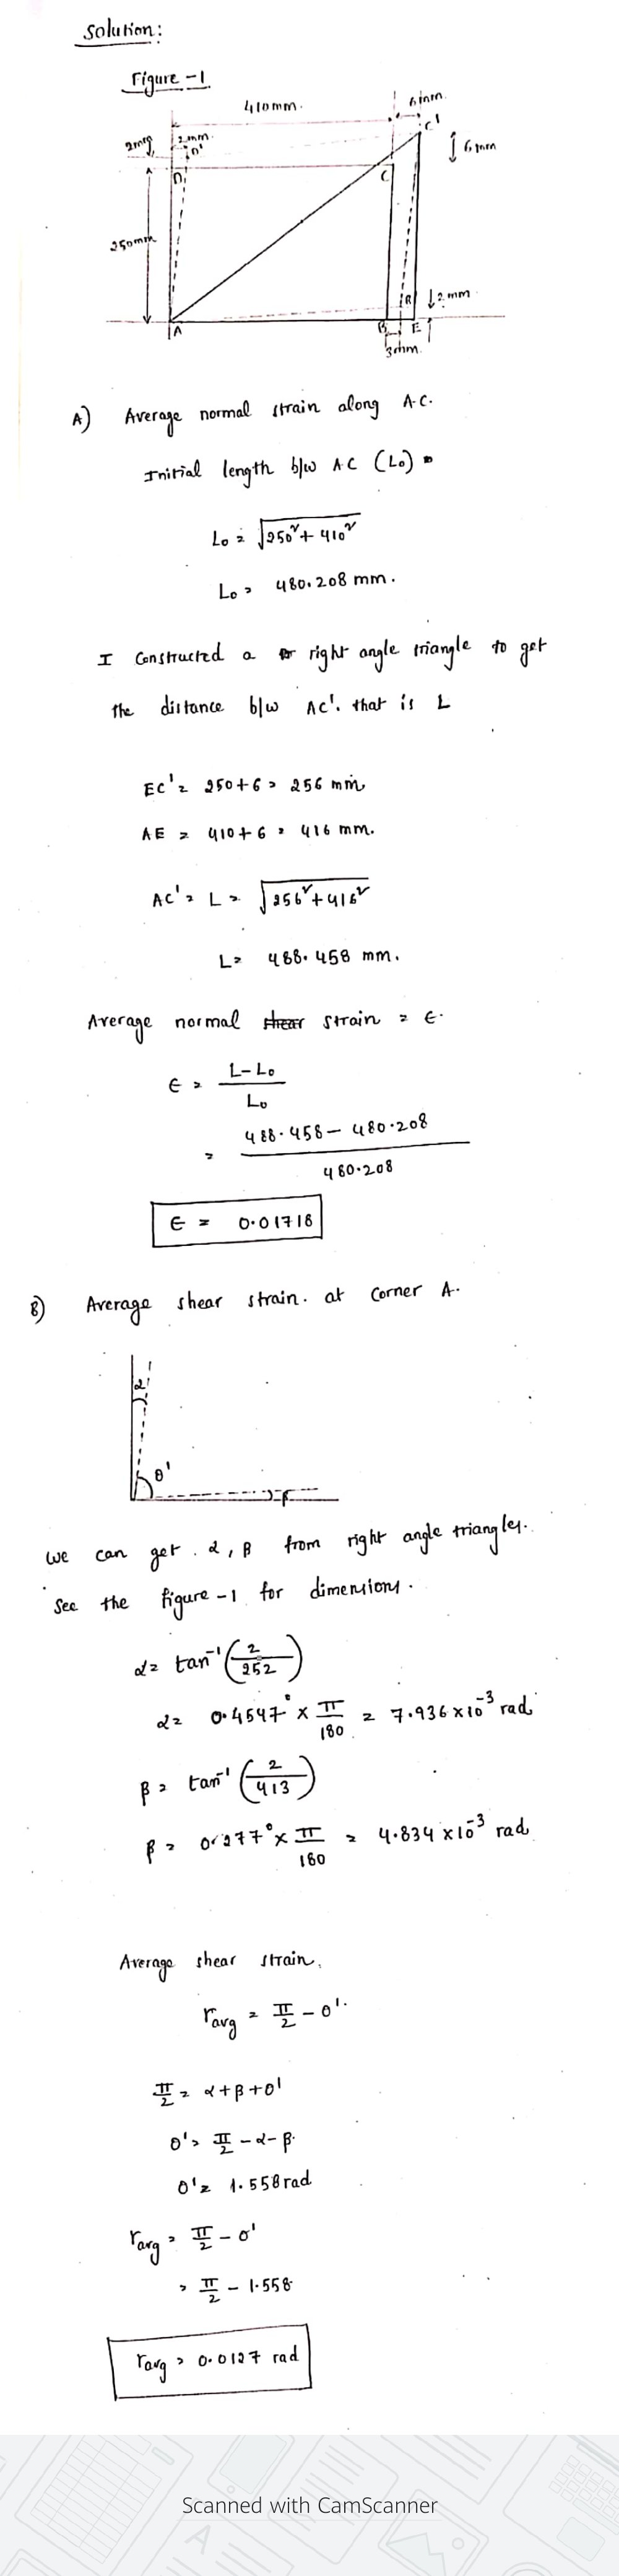 Solution:
Figure-1
410mm.
6mm.
2mm
2mm.
D'
C'
6mm
D
C
250mm
R
2mm
A
B
E
3mm.
A) Average normal strain along A.C.
Initial length b/w AC (Lo) =
Lo = √250²+410²
Lo = 480.208 mm.
I constructed a right angle triangle to get
the distance b/w AC'. that is L
EC' = 250+6 = 256 mm
AE = 410+6 = 416 mm.
AC' = L = √256²+416²
L = 488.458 mm.
Average normal shear strain = ϵ.
ϵ = L-Lo
Lo
= 488.458 - 480.208
480.208
ϵ = 0.01718
B) Average shear strain. at corner A.
α
θ'
β
We can get. α, β from right angle triangles.
See the figure-1 for dimensions.
α = tan⁻¹(2/252)
α = 0.4547° × π/180 = 7.936×10⁻³ rad
β = tan⁻¹(2/413)
β = 0.277° × π/180 = 4.834×10⁻³ rad
Average shear strain,
γavg = π/2 - θ'.
π/2 = α+β+θ'
θ' = π/2 - α - β.
θ' = 1.558 rad
γavg = π/2 - θ'
= π/2 - 1.558
γavg = 0.0127 rad
Scanned with CamScanner